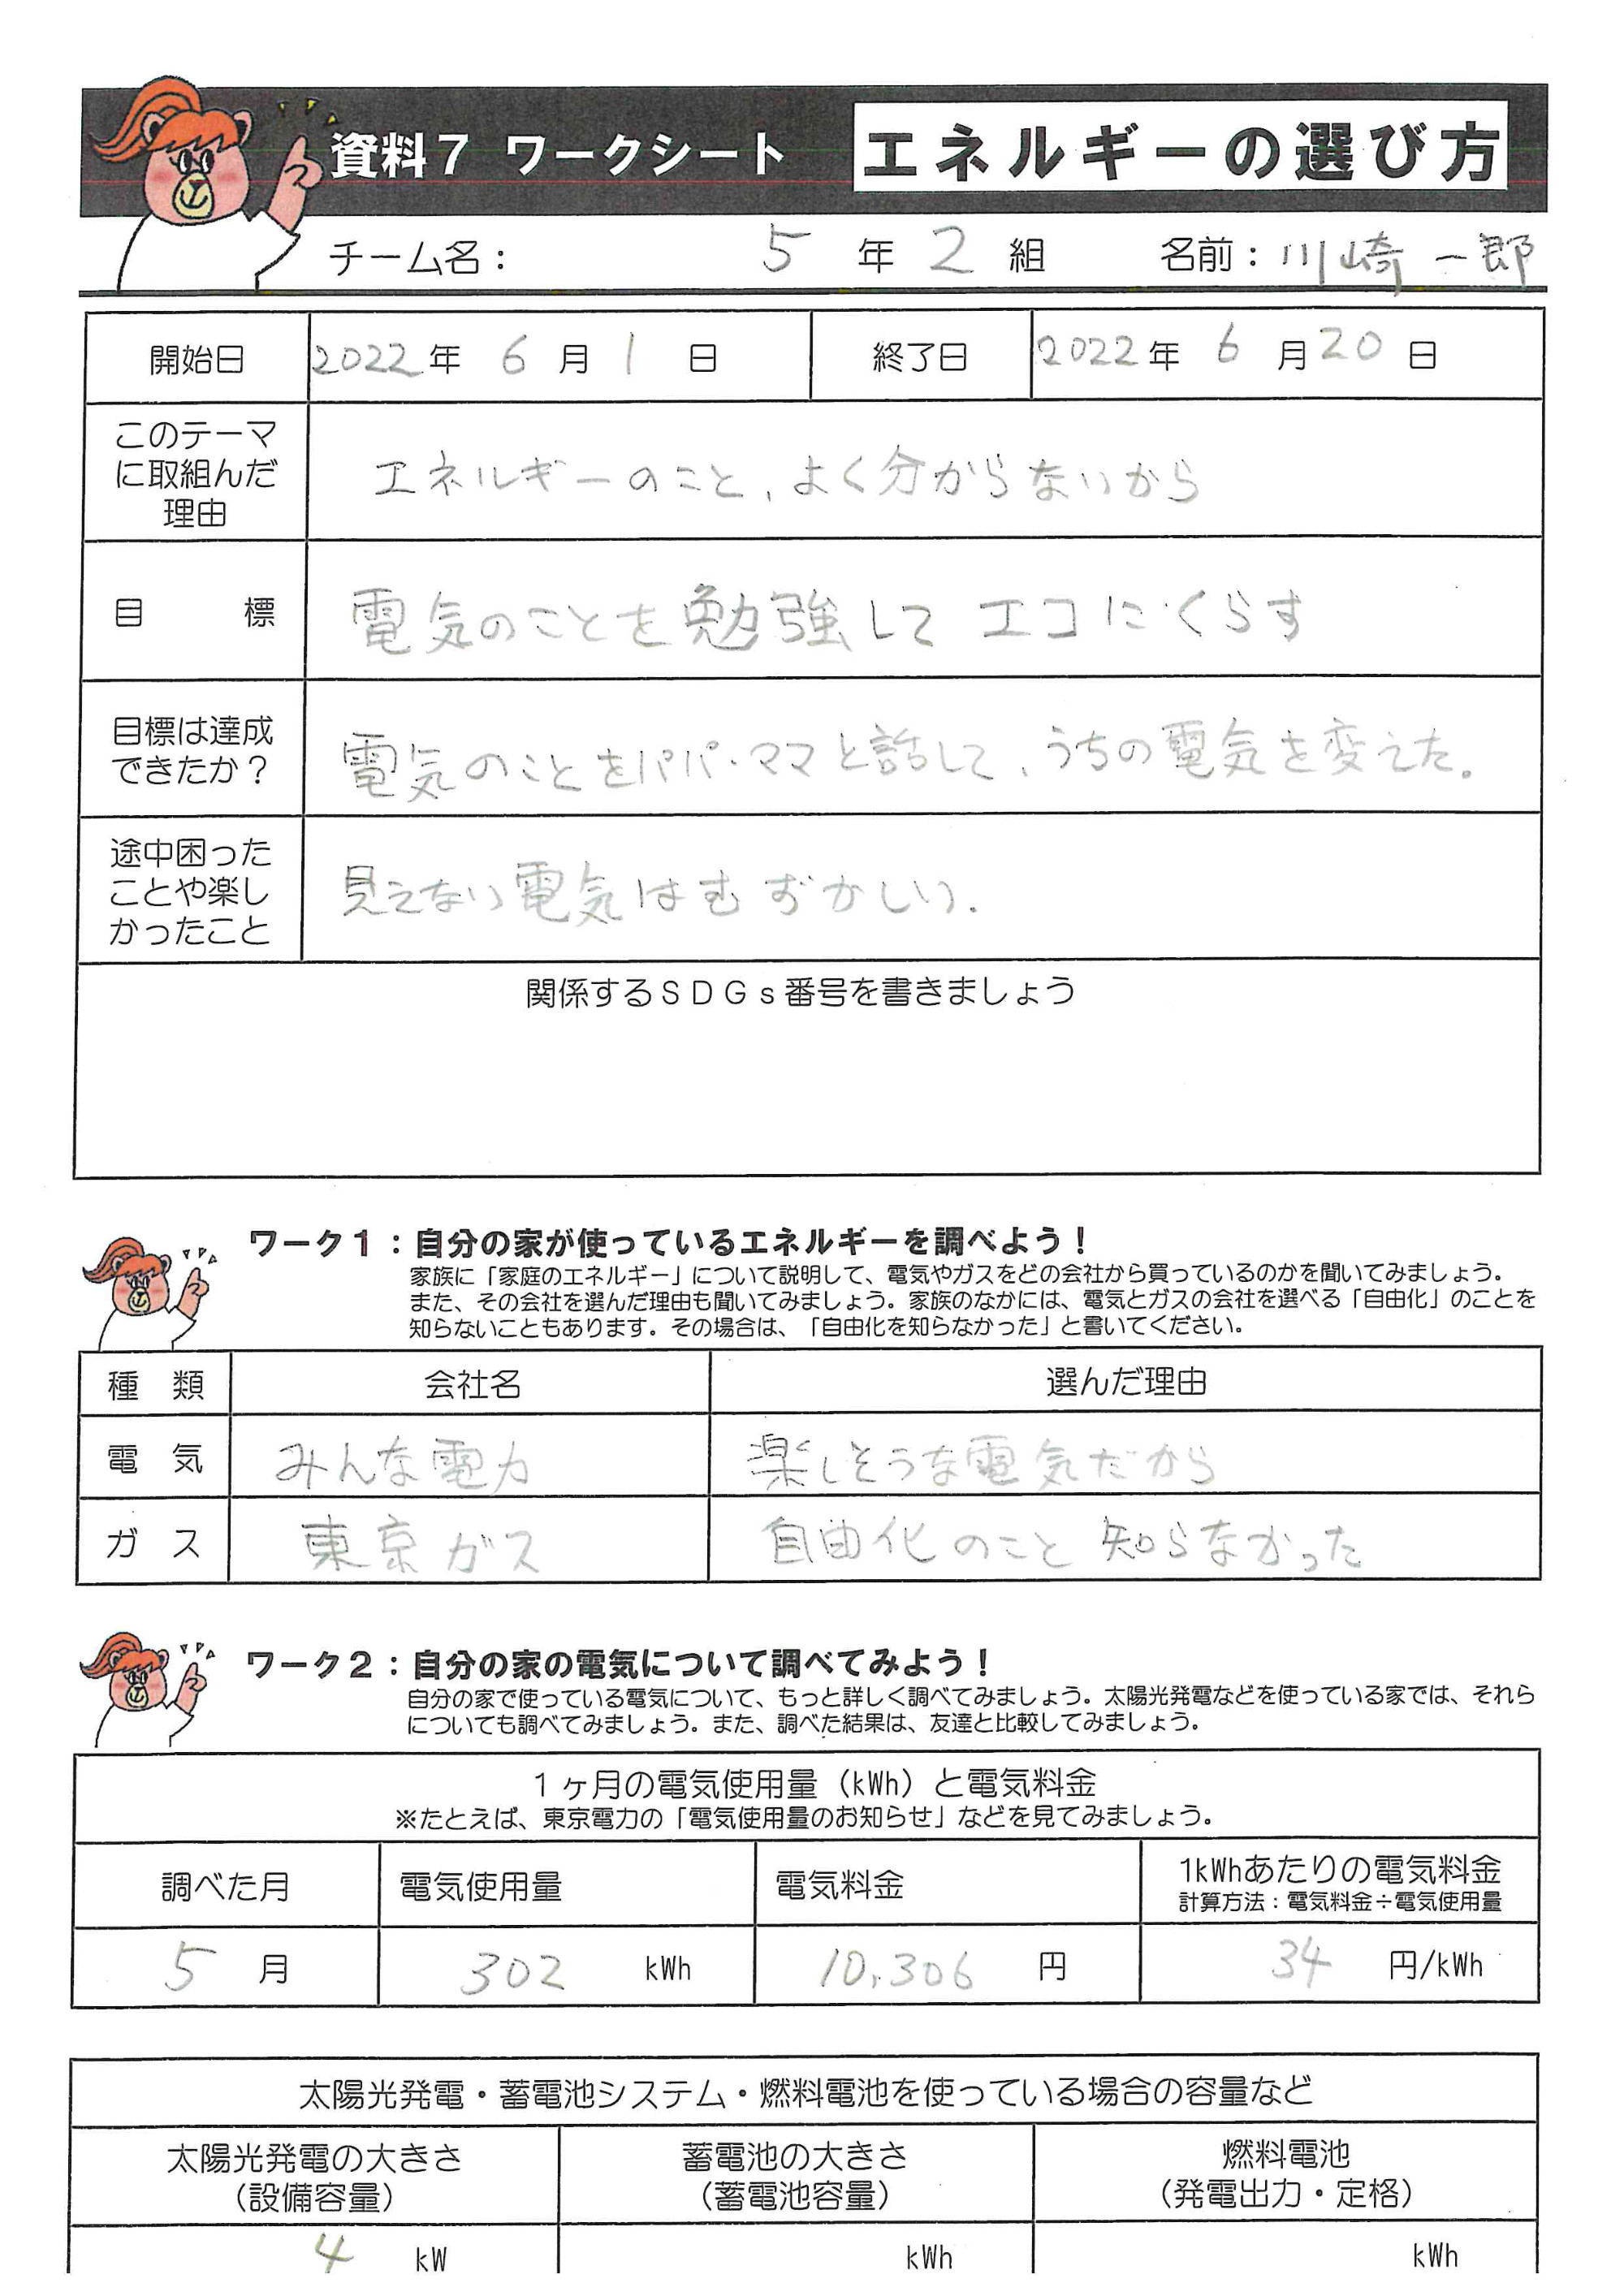 資料7 ワークシート エネルギーの選び方
チーム名： 5 年 2 組 名前：川崎 一郎
開始日 2022 年 6 月 1 日 終了日 2022 年 6 月 20 日
このテーマ
に取組んだ
理由
エネルギーのこと、よく分からないから
目 標 電気のことを勉強して エコにくらす
目標は達成
できたか？
電気のことをパパ・ママと話して、うちの電気を変えた。
途中困った
ことや楽し
かったこと
見えない電気はむずかしい.
関係するＳＤＧｓ番号を書きましょう
ワーク1：自分の家が使っているエネルギーを調べよう！
家族に「家庭のエネルギー」について説明して、電気やガスをどの会社から買っているのかを聞いてみましょう。
また、その会社を選んだ理由も聞いてみましょう。家族のなかには、電気とガスの会社を選べる「自由化」のことを
知らないこともあります。その場合は、「自由化を知らなかった」と書いてください。
種 類 会社名 選んだ理由
電 気 みんな電力 楽しそうな電気だから
ガ ス 東京ガス 自由化のこと 知らなかった
ワーク2：自分の家の電気について調べてみよう！
自分の家で使っている電気について、もっと詳しく調べてみましょう。太陽光発電などを使っている家では、それら
についても調べてみましょう。また、調べた結果は、友達と比較してみましょう。
1ヶ月の電気使用量（kWh）と電気料金
※たとえば、東京電力の「電気使用量のお知らせ」などを見てみましょう。
調べた月 電気使用量 電気料金 1kWhあたりの電気料金
計算方法：電気料金÷電気使用量
5 月 302 kWh 10,306 円 34 円/kWh
太陽光発電・蓄電池システム・燃料電池を使っている場合の容量など
太陽光発電の大きさ 蓄電池の大きさ 燃料電池
（設備容量） （蓄電池容量） （発電出力・定格）
4 kW kWh kWh